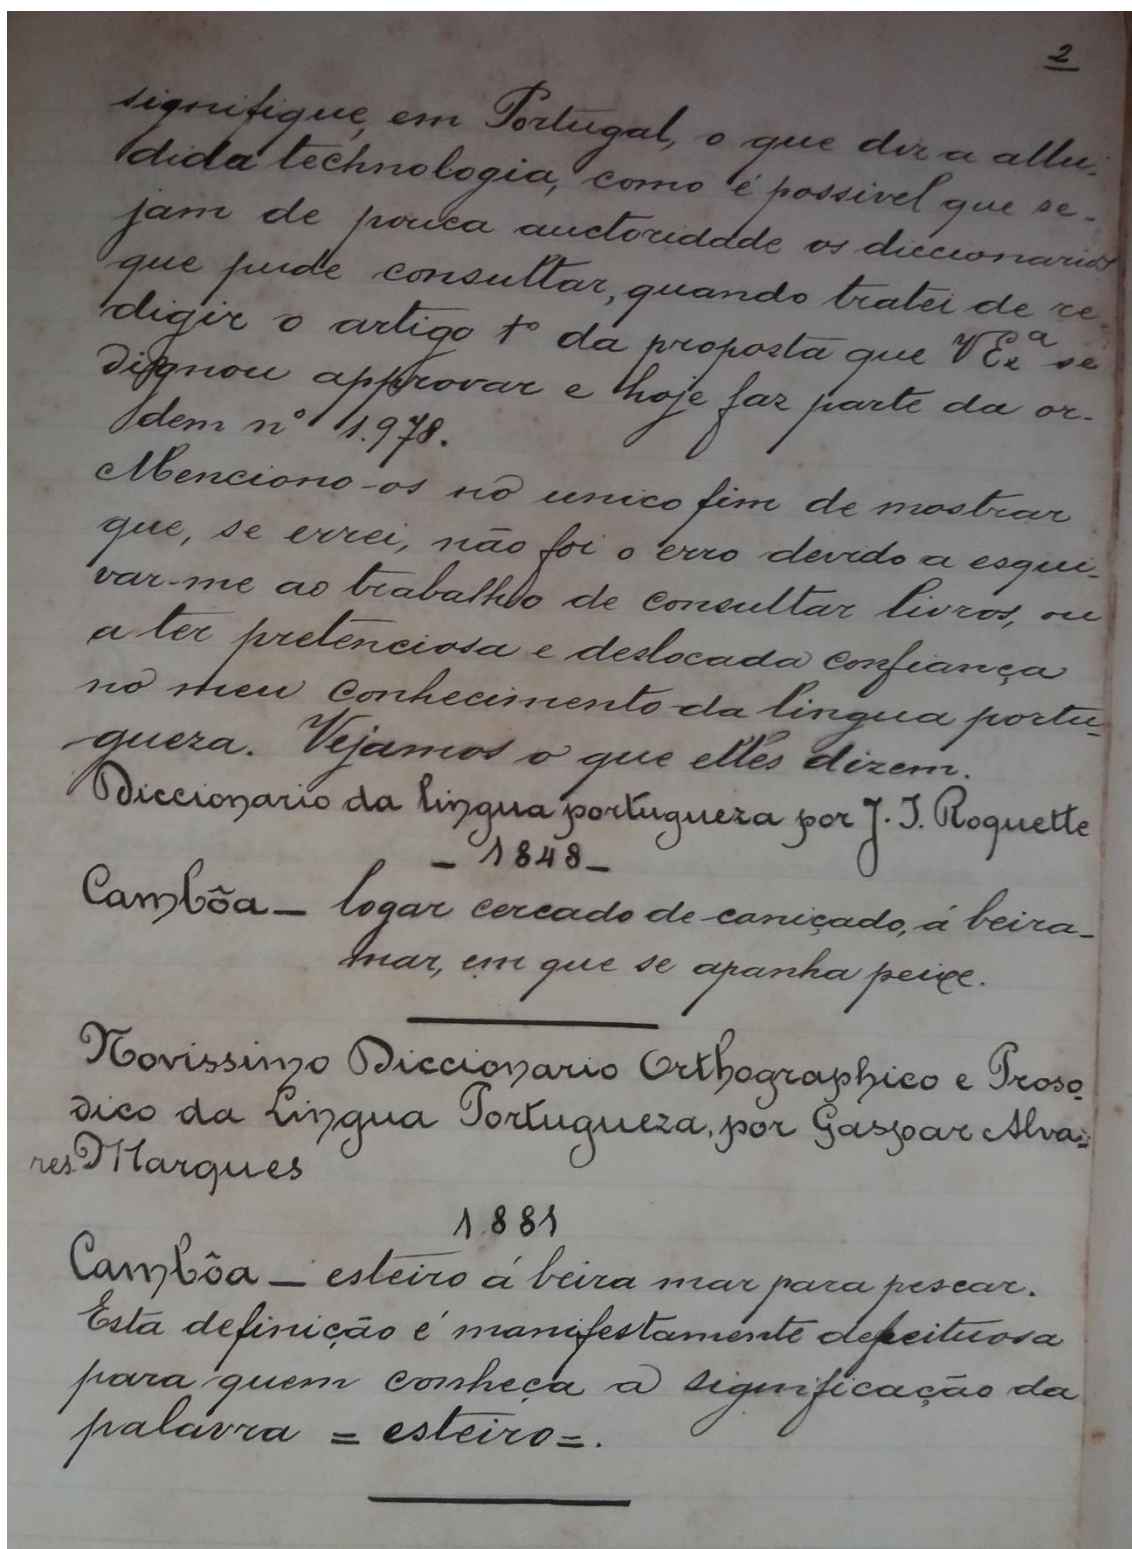 2
signifique, em Portugal, o que diz a allu-
dida technologia, como é possivel que se-
jam de pouca auctoridade os diccionarios
que pude consultar, quando tratei de re-
digir o artigo 1º da proposta que VExª se
dignou approvar e hoje faz parte da or-
dem nº 1.978.
Menciono-os no unico fim de mostrar
que, se errei, não foi o erro devido a esqui-
var-me ao trabalho de consultar livros, ou
a ter pretenciosa e deslocada confiança
no meu conhecimento da lingua portu-
gueza. Vejamos o que elles dizem.
Diccionario da lingua portugueza por J. I. Roquette
- 1848 -
Cambôa — logar cercado de caniçado, á beira-
mar, em que se apanha peixe.
Novissimo Diccionario Orthographico e Proso-
dico da Lingua Portugueza, por Gaspar Alva-
res Marques
1881
Cambôa — esteiro á beira mar para pescar.
Esta definição é manifestamente defeituosa
para quem conheça a significação da
palavra = esteiro =.